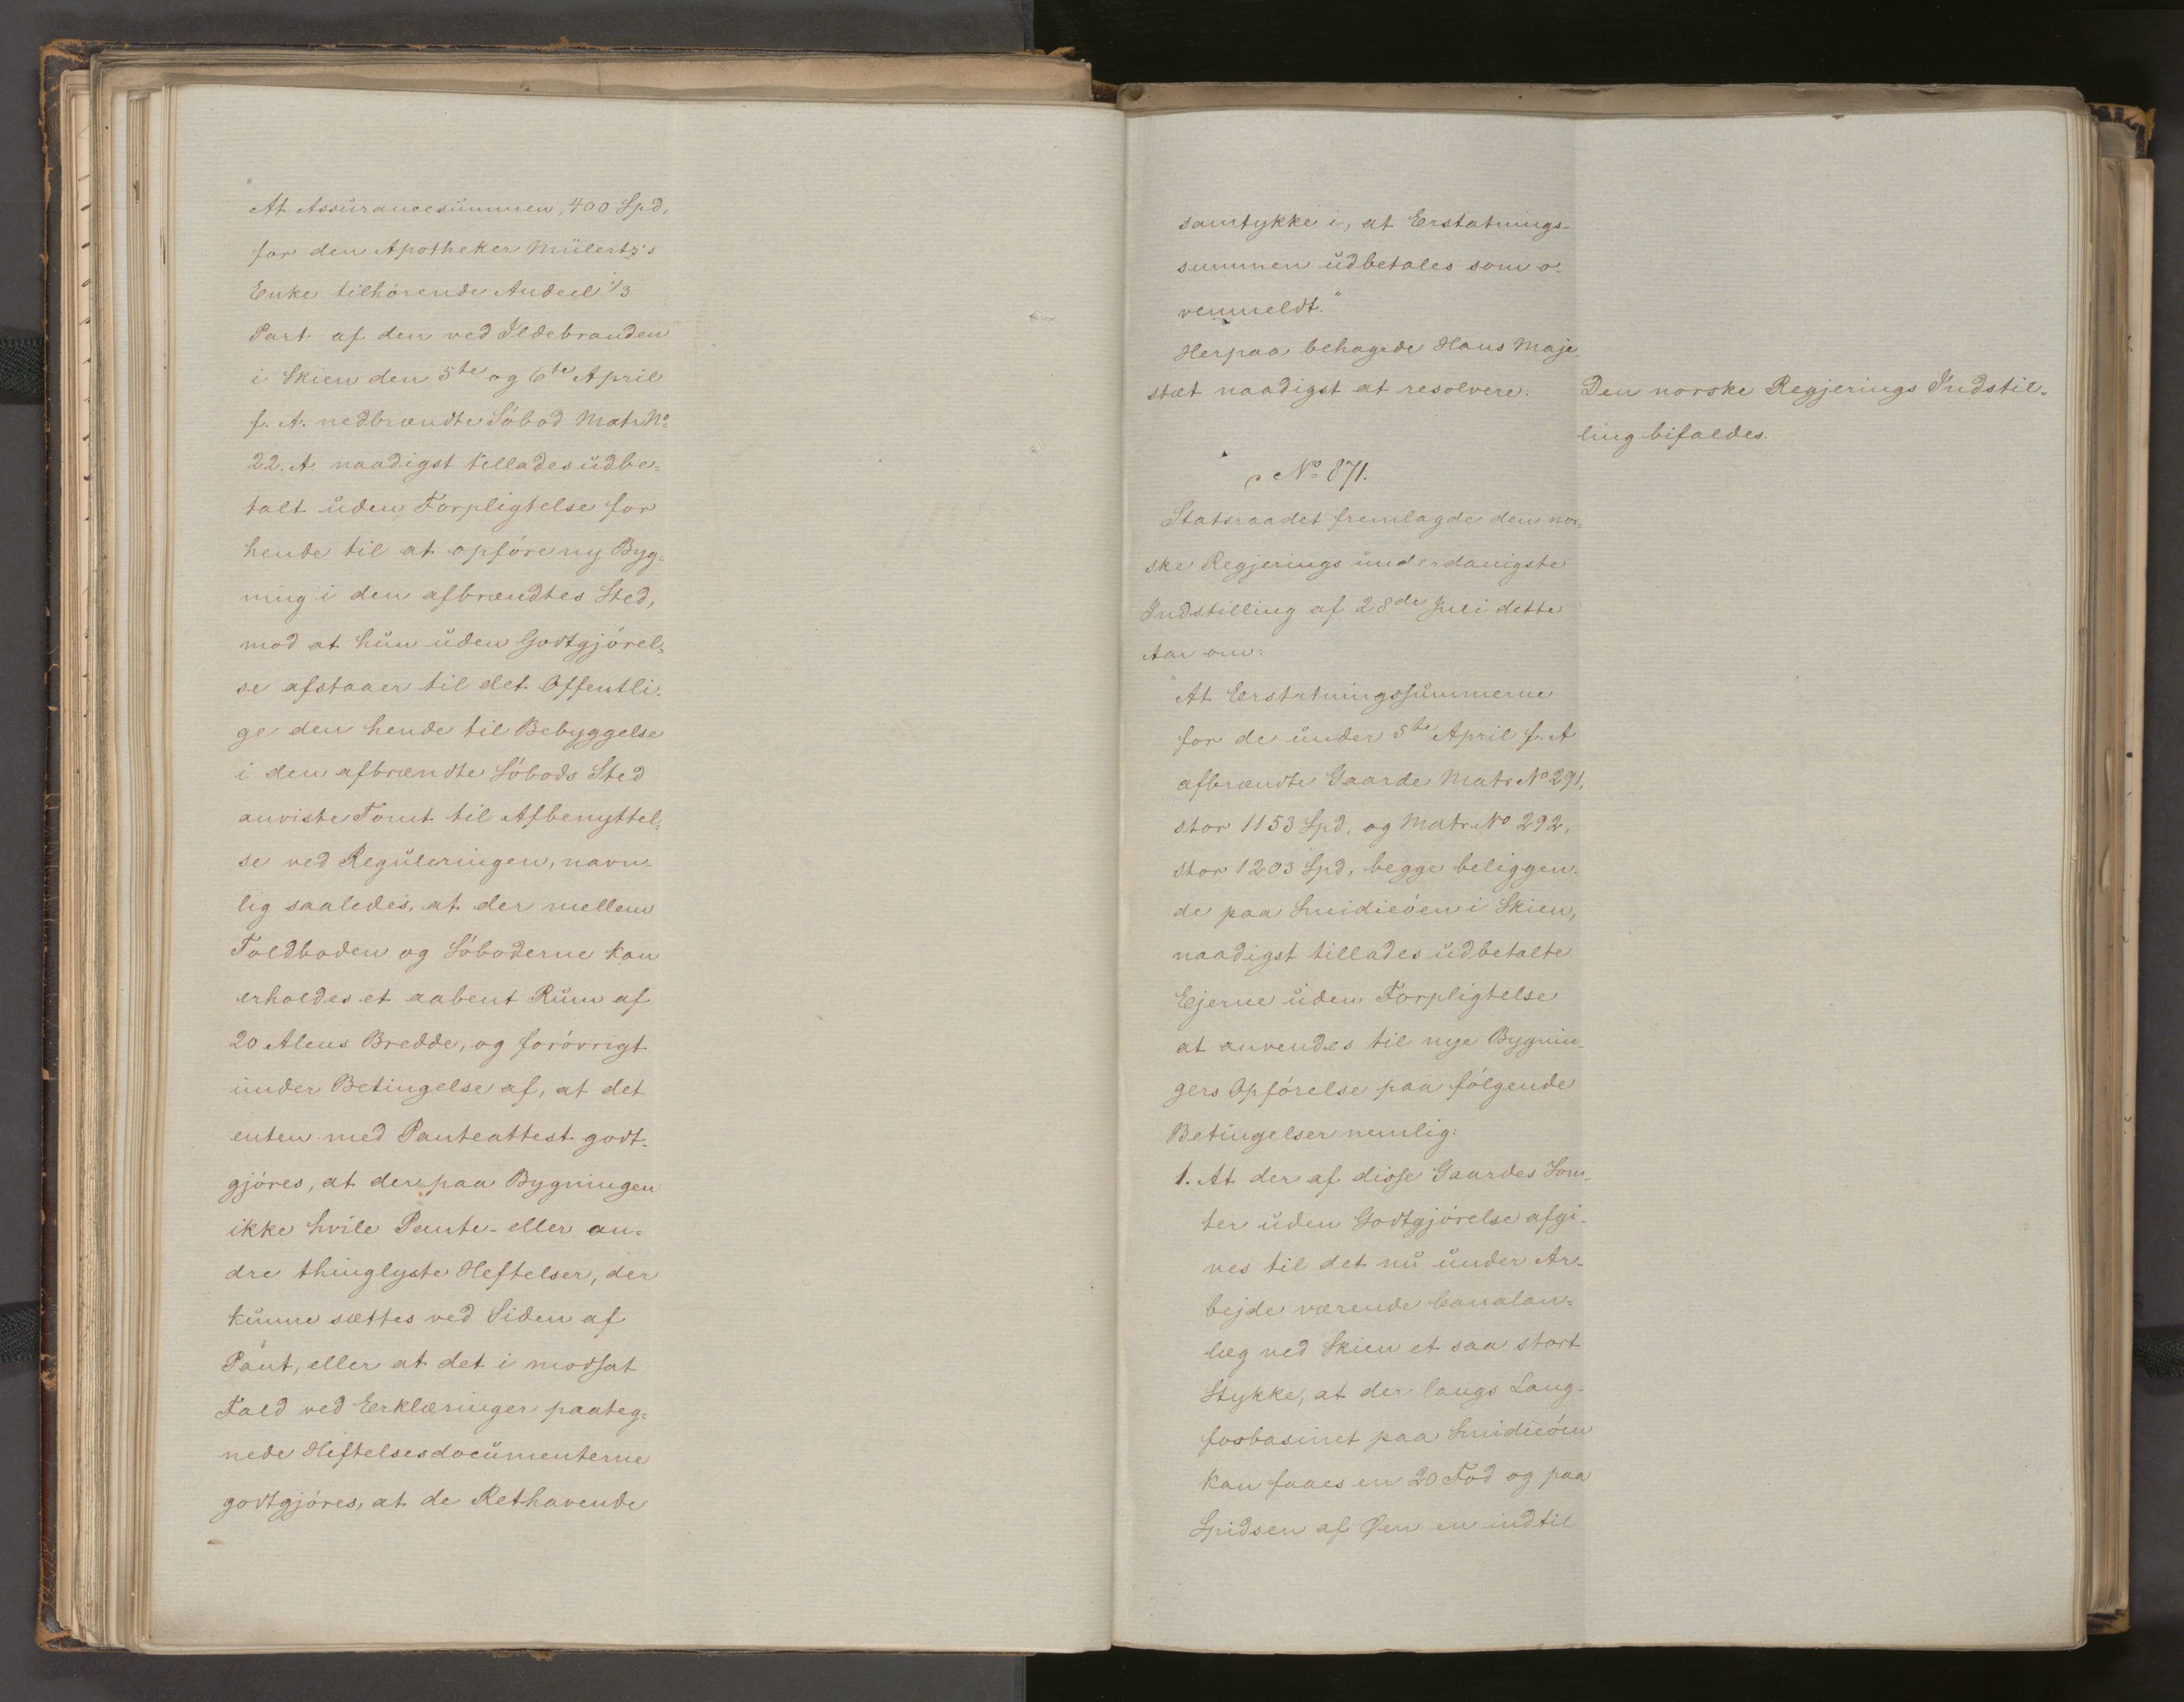 "At Assurancesummen, 400 Spd,
for den Apotheker Mülertz's
Enke tilhörende Andeel 1/3
Part af den ved Ildebranden
i Skien den 5te og 6te April
f. A. nedbrændte Söbod Matr No
22. A naadigst tillades udbe-
talt uden Forpligtelse for
hende til at opföre ny Byg-
ning i den afbrændtes Sted,
mod at hun uden Godtgjörel-
se afstaaer til det Offentli-
ge den hende til Bebyggelse
i den afbrændte Söbods Sted
anviste Tomt til Afbenyttel-
se ved Reguleringen, navn-
lig saaledes, at der mellem
Toldboden og Söboderne kan
erholdes et aabent Rum af
20 Alens Bredde, og forövrigt
under Betingelse af, at det
enten med Panteattest godt-
gjöres, at der paa Bygningen
ikke hvile Pante- eller an-
dre thinglyste Heftelser, der
kunne sættes ved Siden af
Pant, eller at det i modsat
Fald ved Erklæringer paateg-
nede Heftelsesdocumenterne
godtgjöres, at de Rethavende
samtykke i, at Erstatnings-
summen udbetales som o-
venmeldt."
Herpaa behagede Hans Maje-
stæt naadigst at resolvere:
Den norske Regjerings Indstil-
ling bifaldes.
No 871.
Statsraadet fremlagde den nor-
ske Regjerings underdanigste
Indstilling af 28de Juli dette
Aar om:
"At Erstatningssummerne
for de under 5te April f. A
afbrændte Gaarde Matr No 291,
stor 1153 Spd, og Matr No 292,
stor 1203 Spd, begge beliggen-
de paa Smidieöen i Skien,
naadigst tillades udbetalte
Ejerne uden Forpligtelse
at anvendes til nye Bygnin-
gers Opförelse paa fölgende
Betingelser nemlig:
1. At der af disse Gaardes Tom-
ter uden Godtgjörelse afgi-
ves til det nu under Ar-
bejde værende Canalan-
læg ved Skien et saa stort
Stykke, at der langs Lang-
fosbasinet paa Smidieöen
kan faaes en 20 Fod og paa
Spidsen af Øen en indtil